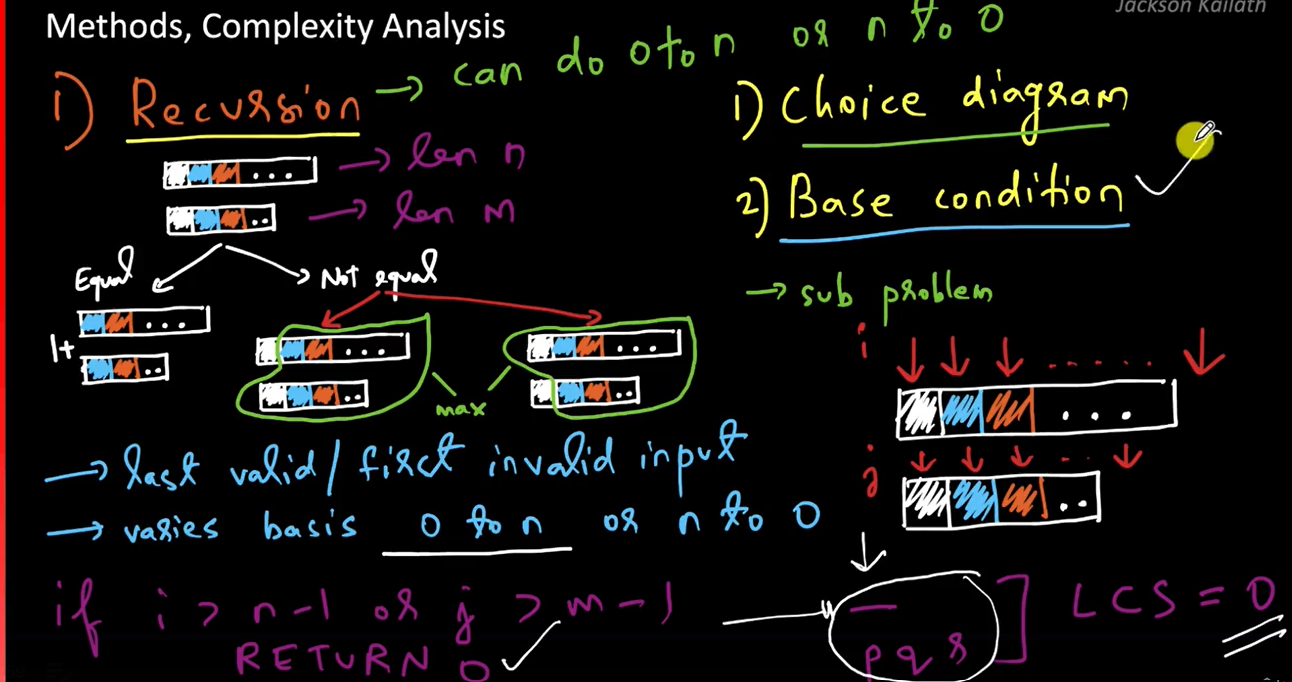 Methods, Complexity Analysis
Jackson Kailath
1) Recursion → can do 0 to n or n to 0
→ len n
→ len m
Equal
Not equal
1+
max
→ last valid/first invalid input
→ varies basis 0 to n or n to 0
if i > n-1 or j > m-1
RETURN 0
1) Choice diagram
2) Base condition
→ sub problem
i
j
pqs
LCS = 0